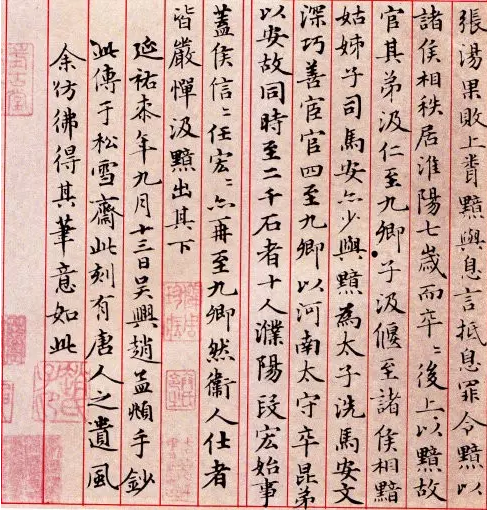 張湯果敗上聞黯與息言抵息罪令黯以
諸侯相秩居淮陽七歲而卒〻後上以黯故
官其弟汲仁至九卿子汲偃至諸侯相黯
姑姊子司馬安亦少與黯為太子洗馬安文
深巧善宦官四至九卿以河南太守卒昆弟
以安故同時至二千石者十人濮陽段宏始事
蓋侯信〻任宏〻亦再至九卿然衛人仕者
皆嚴憚汲黯出其下
延祐柒年九月十三日吳興趙孟頫手鈔
此傳于松雪齋此刻有唐人之遺風
余彷彿得其筆意如此